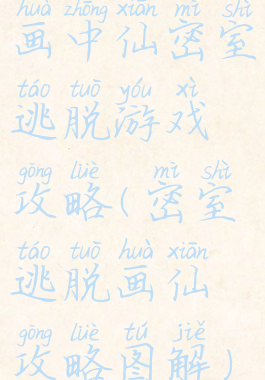 huà zhōng xiān mì shì
画中仙密室
táo tuō yóu xì
逃脱游戏
gōng lüè mì shì
攻略(密室
táo tuō huà xiān
逃脱画仙
gōng lüè tú jiě
攻略图解)